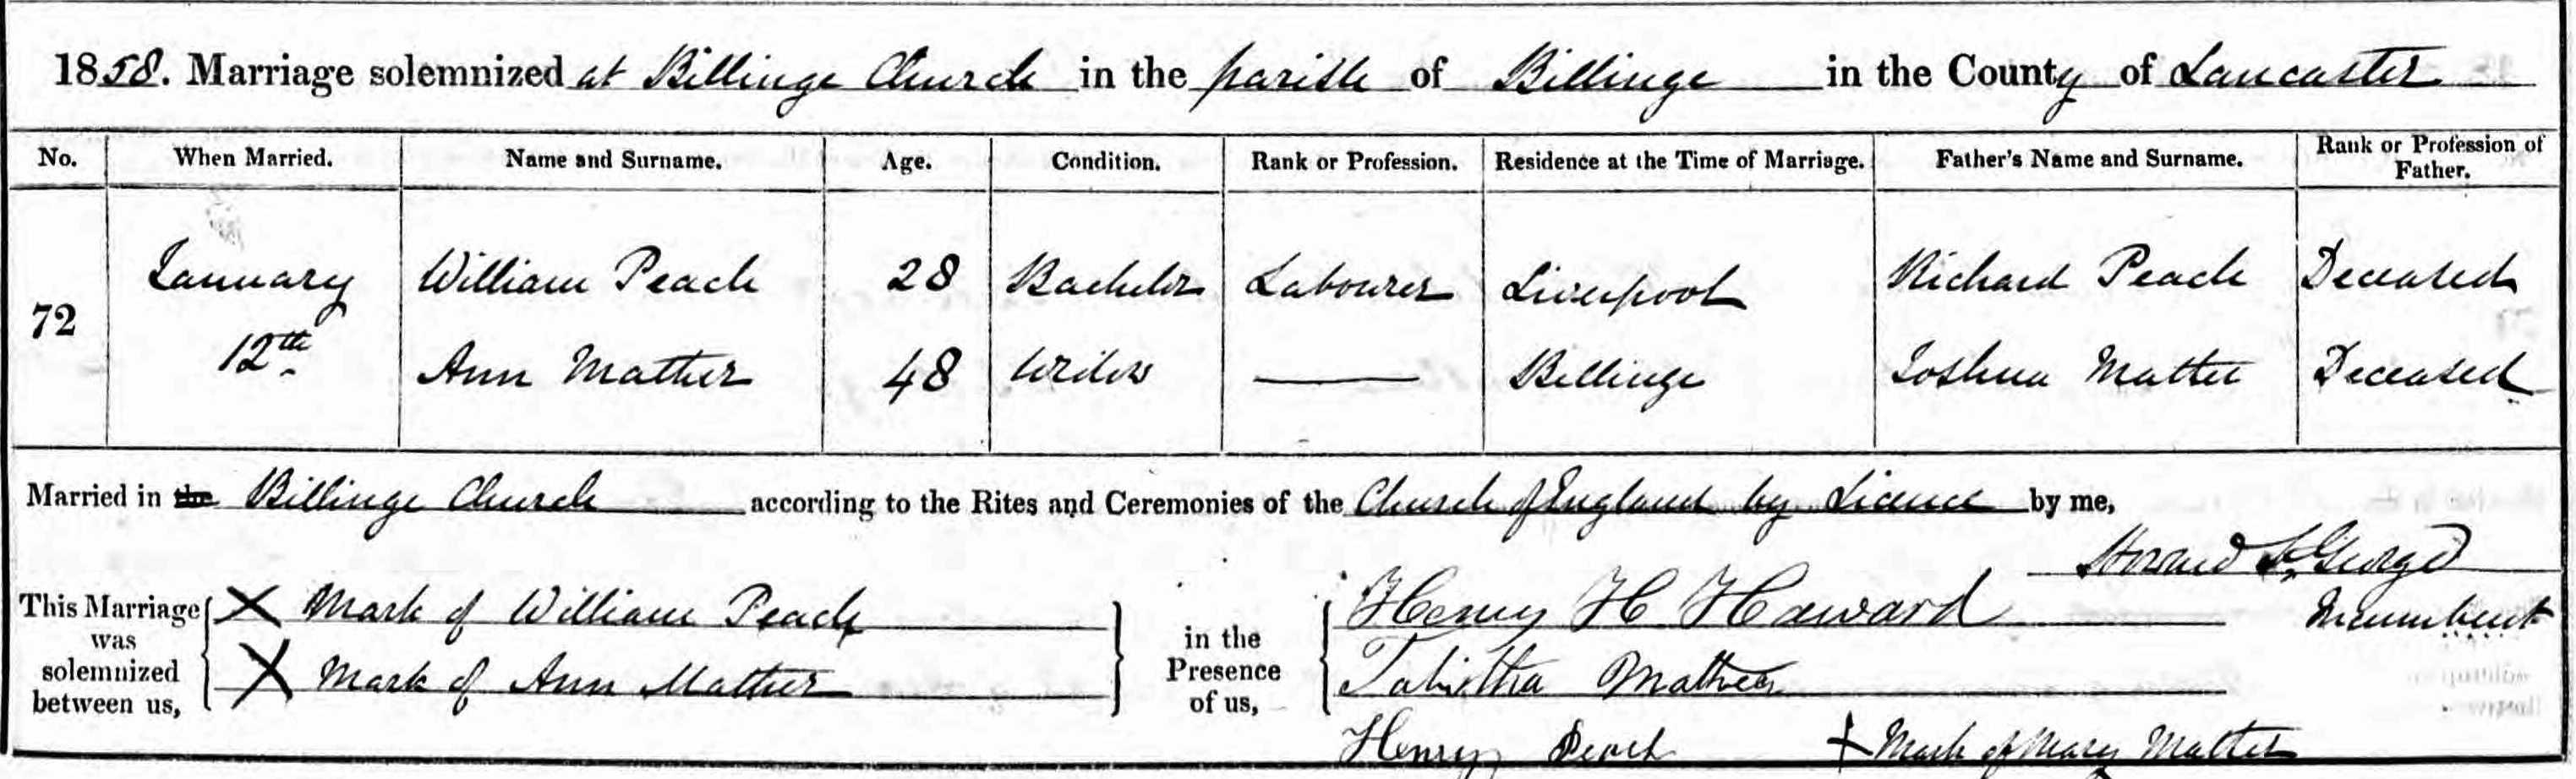 1858. Marriage solemnized at Billinge Church in the parish of Billinge in the County of Lancaster
No. When Married. Name and Surname. Age. Condition. Rank or Profession. Residence at the Time of Marriage. Father's Name and Surname. Rank or Profession of Father.
72 January 12th William Peach 28 Bachelor Labourer Liverpool Richard Peach Deceased
Ann Mather 48 Widow Billinge Joshua Mather Deceased
Married in the Billinge Church according to the Rites and Ceremonies of the Church of England by Licence by me,
Howard St. George
Incumbent
This Marriage was solemnized between us,
X Mark of William Peach
X Mark of Ann Mather
in the Presence of us,
Henry H Haward
Tabitha Mather
Henry Peach + Mark of Mary Mather